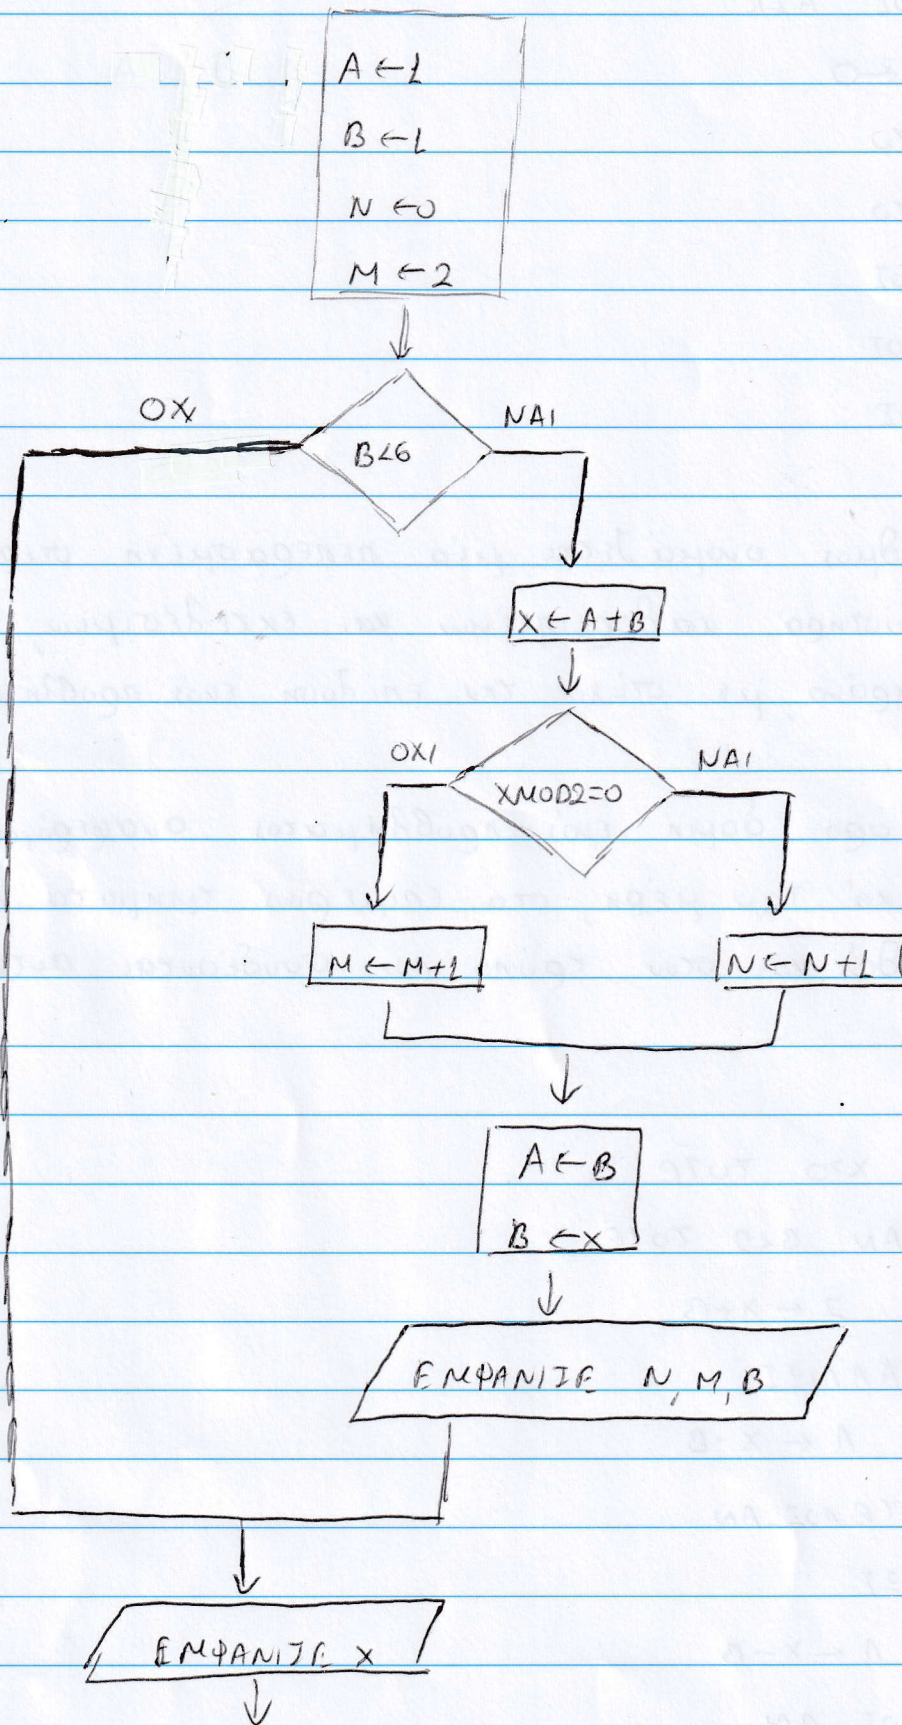 A ← 1
B ← 1
N ← 0
M ← 2
ΟΧΙ
B<6
ΝΑΙ
X ← A+B
ΟΧΙ
XMOD2=0
ΝΑΙ
M ← M+1
N ← N+1
A ← B
B ← X
ΕΜΦΑΝΙΣΕ N, M, B
ΕΜΦΑΝΙΣΕ X